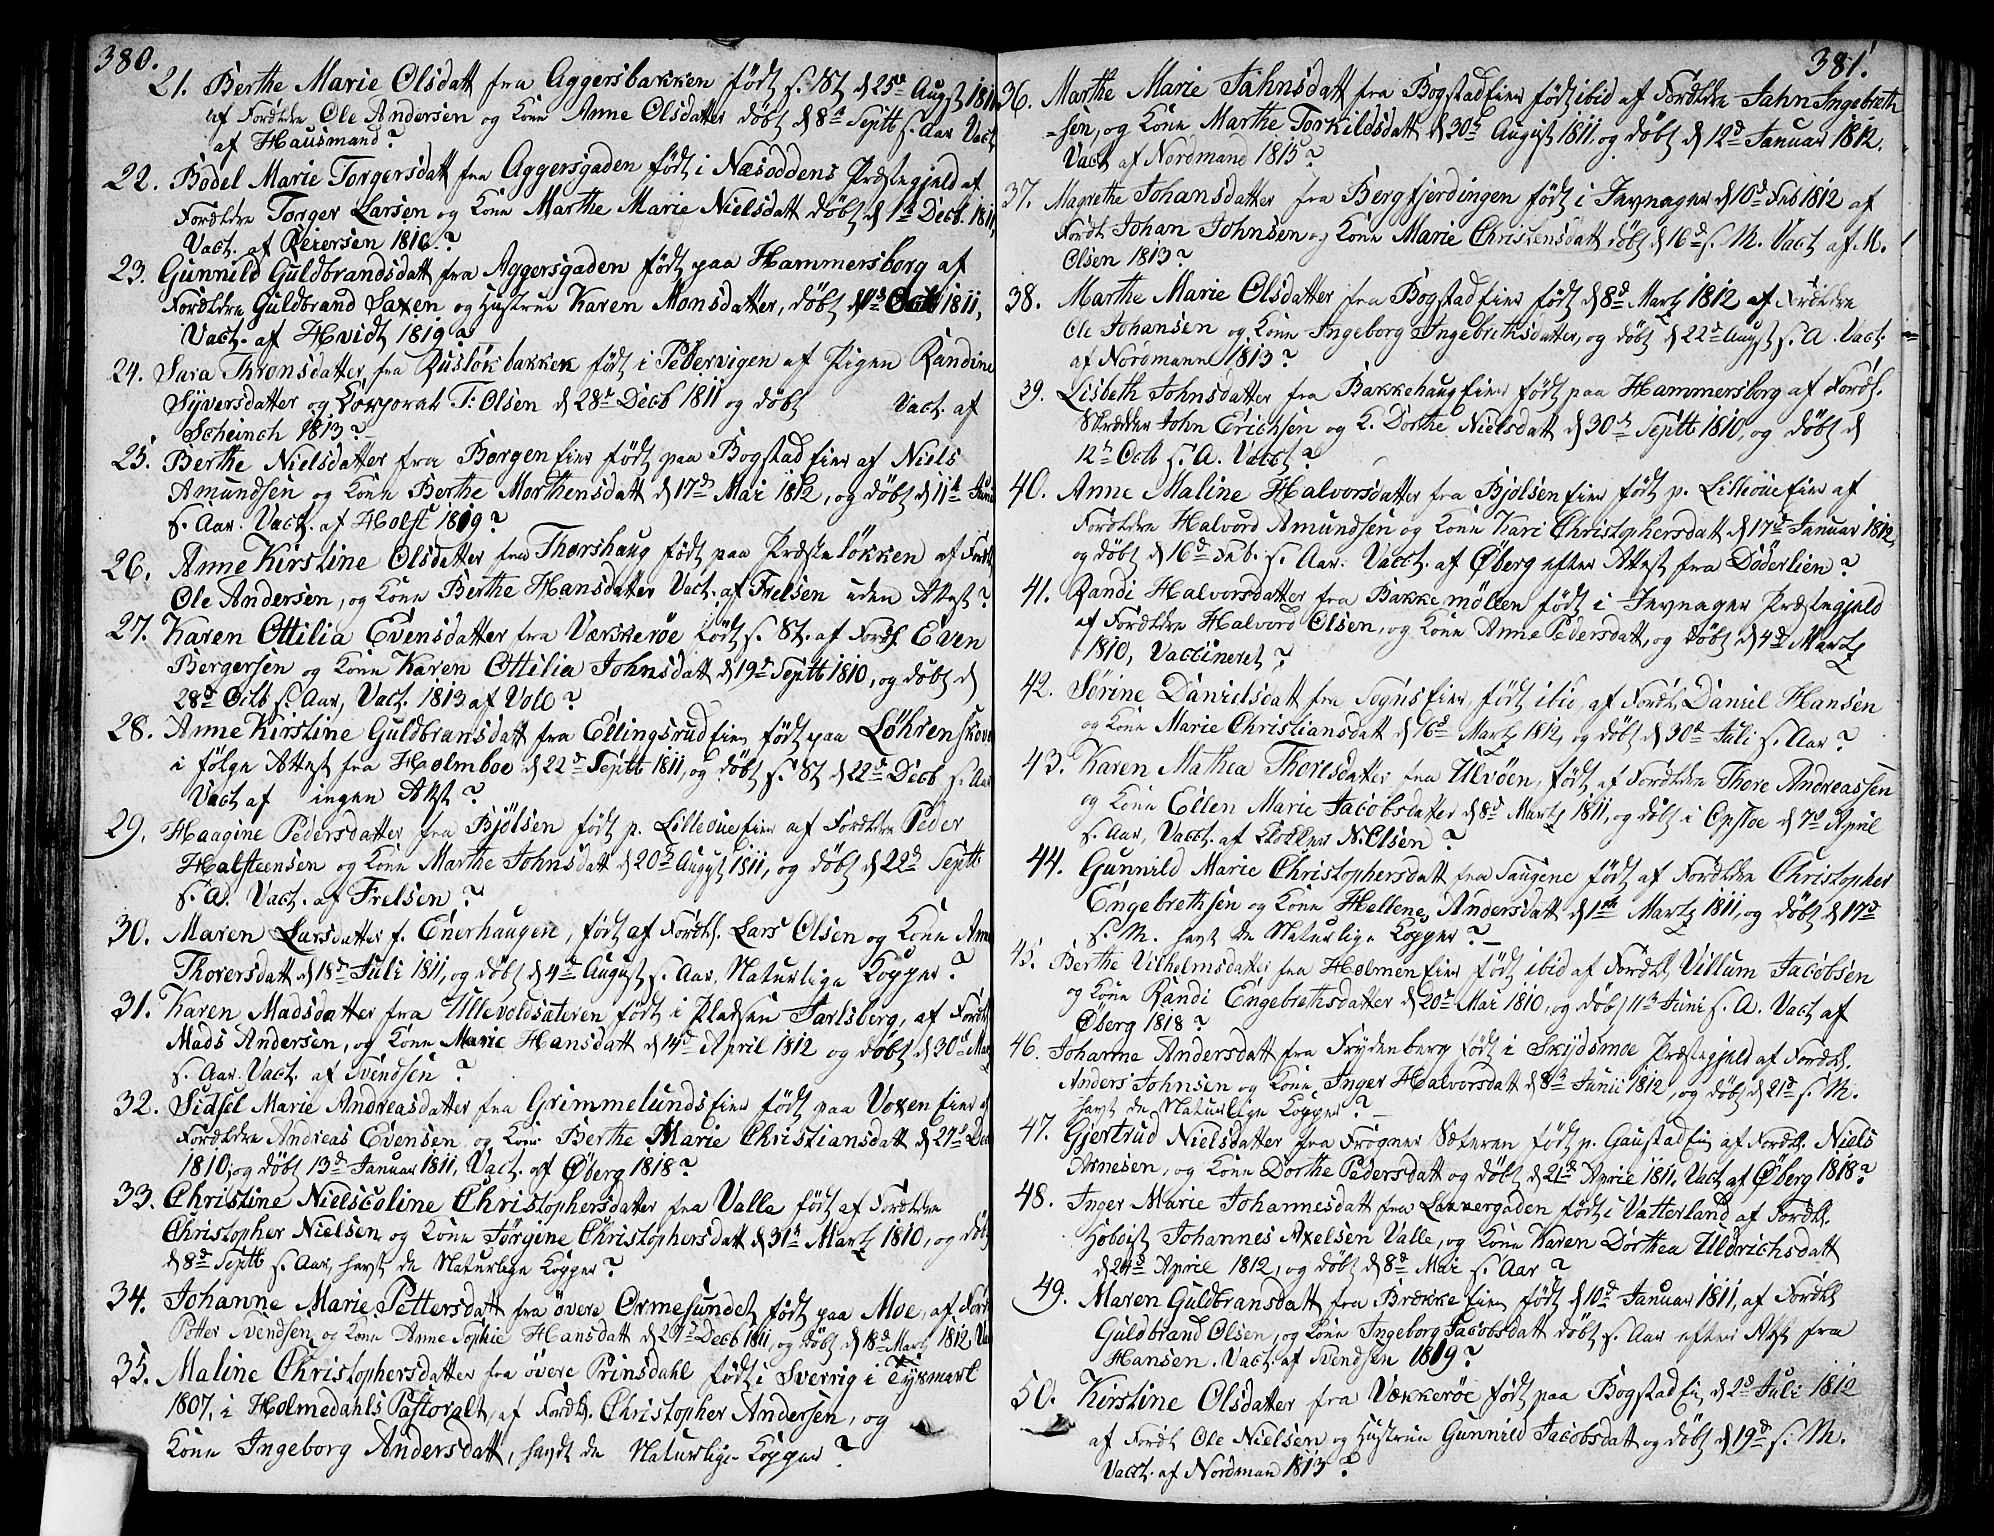 380.
21. Berthe Marie Olsdatt fra Aggersbakken født s. St. d 25de Augst 1811
af Forældre Ole Andersen og Kone Anne Olsdatter døbt d 8d Septb s. Aar Vact
af Hausmand?
22. Bodel Marie Torgersdatt fra Aggersgaden født i Næsoddens Præstegjeld af
Forældre Torger Larsen og Kone Marthe Marie Nielsdatt døbt d 1d Decb. 1811,
Vact. af Reiersen 1816.?
23. Gunnild Guldbrandsdatt fra Aggersgaden født paa Hammersborg af
Forældre Guldbrand Saxen og Hustrue Karen Monsdatter, døbt d Octb 1811,
Vact. af Hvidt 1819?
24. Sara Thronsdatter fra Rusløkbakken født i Pebervigen af Pigen Randine
Syversdatter og Corporal T: Olsen d 28de Decb 1811 og døbt Vact. af
Scheinch 1813?
25. Berthe Nielsdatter fra Borgen Eier født paa Bogstad Eier af Niels
Amundsen og Kone Berthe Morthensdatt d 17de Mai 1812, og døbt d 11te Juni
s. Aar. Vact. af Holst 1819?
26. Anne Kirstine Olsdatter fra Thorshaug født paa Præsteløkken af Forældr
Ole Andersen, og Kone Berthe Hansdatter Vact. af Frelsen uden Attest?
27. Karen Ottilia Evensdatter fra Værskerøe født s. St. af Foræl. Even
Bergersen og Kone Karen Ottilia Johnsdatt d 19de Septb 1810, og døbt d
28de Octb s. Aar, Vact. 1813 af Voll?
28. Anne Kirstine Guldbransdatt fra Ellingsrud Eier født paa Løhrenskoven
i følge Attest fra Holmboe d 22de Septb 1811, og døbt s. St d 22de Decb s. Aar
Vact af ingen Attst?
29. Haagine Pedersdatter fra Bjølsen født p. Lilleøue Eier af Forældre Peder
Halsteensen og Kone Marthe Johnsdatt d 20de August 1811, og døbt d 22de Septb
s. A. Vact. af Frelsen?
30. Maren Larsdatter f. Enerhaugen, født af Foræld. Lars Olsen og Kone Anne
Thorersdatt d 18de Juli 1811, og døbt d 4de August s. Aar, Naturlige Kopper?
31. Karen Madsdatter fra Ullevoldsæteren født i Pladsen Jarlsberg, af Foræld
Mads Andersen, og Kone Marie Hansdatt d 14de April 1812 og døbt d 30de Mai
s. Aar. Vact. af Svendsen?
32. Sidsel Marie Andreasdatter fra Grimmelunds Eier født paa Voxen Eier af
Forældre Andreas Evensen, og Kone Berthe Marie Christiansdatt d 27de Decb
1810, og døbt 13de Januar 1811, Vact. af Øberg 1818?
33. Christine Nielscoline Christophersdatter fra Valle født af Forældre
Christopher Nielsen og Kone Jørgine Christophersdatt d 31te Martz 1810, og døbt
d 8de Septb s. Aar, havt de Naturlige Kopper?
34. Johanne Marie Pettersdatt fra øvere Ormesundet født paa Moe, af Foræld
Petter Svendsen og Kone Anne Sophie Hansdatt d 27de Decb 1811, og døbt d 18de Martz 1812 Vac
35. Maline Christophersdatter fra øvere Prinsdahl født i Sverrig i Fyxmark
1807, i Holmedahls Pastoralt, af Foræld. Christopher Andersen, og
Kone Ingeborg Andersdatt, havdt de Naturlige Kopper?
381.
36. Marthe Marie Jahnsdatt fra Bogstad Eier født ibid af Forældre Jahn Ingebreth
-sen, og Kone Marthe Torkildsdatt d 30te August 1811, og døbt d 12de Januar 1812.
Vact af Nordmand 1815?
37. Magrethe Johansdatter fra Bergfjerdingen født i Jevnager d 10de Feb 1812 af
Foræld. Johan Johnsen og Kone Marie Christensdatt døbt d 16de s. M. Vact af M.
Olsen 1813?
38. Marthe Marie Olsdatter fra Bogstad Eier født d 8de Martz 1812 af Forældre
Ole Johansen og Kone Ingeborg Ingebrethsdatter, og døbt d 22de August s. A. Vact.
af Nordmann 1813?
39. Lisbeth Johnsdatter fra Bakkehaug Eier født paa Hammersborg af Foræl.
Skrædder John Erichsen og K. Dorthe Nielsdatt d 30te Septb 1810, og døbt d
12te Octb s. A. Vact?
40. Anne Maline Halvorsdatter fra Bjølsen Eier født p. Lilleøue Eier af
Forældre Halvord Amundsen og Kone Kari Christophersdatt d 17de Januar 1812,
og døbt d 16de Feb. s. Aar. Vact. af Øberg efter Attest fra Døderlien?
41. Randi Halvorsdatter fra Bakkemøllen født i Jevnager Præstegjeld
af Forældre Halvord Olsen, og Kone Anne Pedersdatt, og døbt d 4de Martz
1810, Vaccineret?
42. Sørine Danielsdatt fra Sogns Eier født ibid, af Foræld. Daniel Hansen
og Kone Marie Christiansdatt d 16de Martz 1812, og døbt d 30de Juli s. Aar?
43. Karen Mathea Thoresdatter fra Ulvøen, født af Forældre Thore Andreassen
og Kone Ellen Marie Jacobsdatter d 8de Martz 1811, og døbt i Opsloe d 7de April
s. Aar, Vact. af Klokker N. Olsen?
44. Gunnild Marie Christophersdatt fra Saugene født af Forældre Christopher
Engebrethsen og Kone Hellene Andersdatt d 1ste Martz 1811, og døbt d 17de
s. M. havt de Naturlige Kopper?
45. Berthe Vilhelmsdatter fra Holmen Eier født ibid af Foræld. Villum Jacobsen
og Kone Randi Engebrethsdatter d 20de Mai 1810, og døbt 11te Juni s. A. Vact af
Øberg 1818?
46. Johanne Andersdatt fra Frydenberg født i Skydsmoe Præstegjeld af Foræld.
Anders Johnsen og Kone Inger Halvorsdatt d 8de Junii 1812, og døbt d 21de s. M.
havt de Naturlige Kopper?
47. Gjertrud Nielsdatter fra Frogner Sæteren født p. Gaustad Eie af Foræld. Niels
Arnesen, og Kone Dorthe Pedersdatt og døbt d 21de Aprie 1811, Vact af Øberg 1818?
48. Inger Marie Johannesdatt fra Lakkergaden født i Vatterland af Foræld.
Hoboist Johannes Axelsen Valle, og Kone Karen Dorthea Uldrichsdatt
d 24de Aprie 1812, og døbt d 8de Mai s. Aar?
49. Maren Guldbransdatt fra Brække Eier født d 10de Januar 1811, af Foræld
Guldbrand Olsen, og Kone Ingeborg Jacobsdatt døbt s. Aar efter Attst fra
Hansen. Vact. af Svendsen 1819?
50. Kirstine Olsdatter fra Vækkerøe født paa Bogstad Ei, d 2de Juli 1812
af Foræld Ole Nielsen og Hustrue Gunnild Jacobsdatt og døbt d 19de s. M.
Vact. af Nordman 1813?